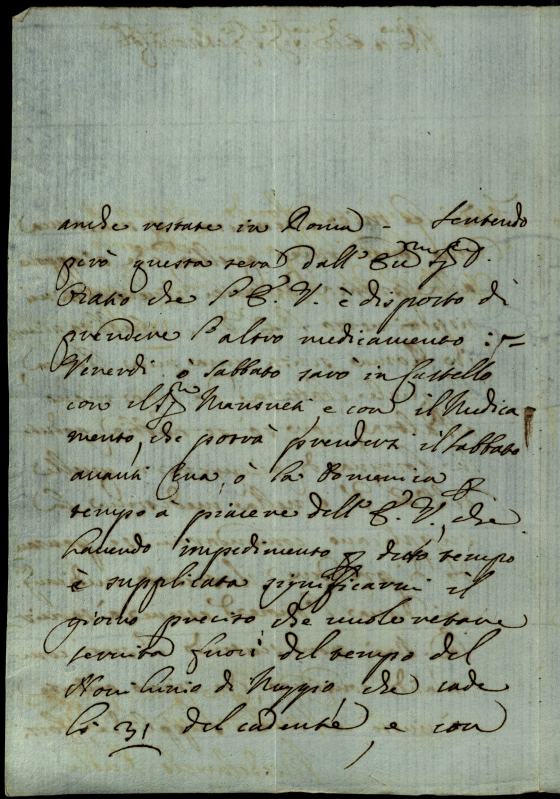 anche restate in Roma - Sentendo
però questa sera dall' Ecc.mo Sig. D.
Oratio che l'E. V. è disposto di
prendere l'altro medicamento :
Venerdì ò Sabbato sarò in Castello
con il Sig.r Mansueti e con il Medica
mento, che potrà prendersi il Sabbato
avanti Cena, ò la Domenica p
tempo à piacere dell' E. V., che
havendo impedimento p detto tempo
è supplicata significarmi il
giorno preciso che vuole restare
servita fuori del tempo del
Novilunio di Maggio che cade
li 31 del cadente, e con